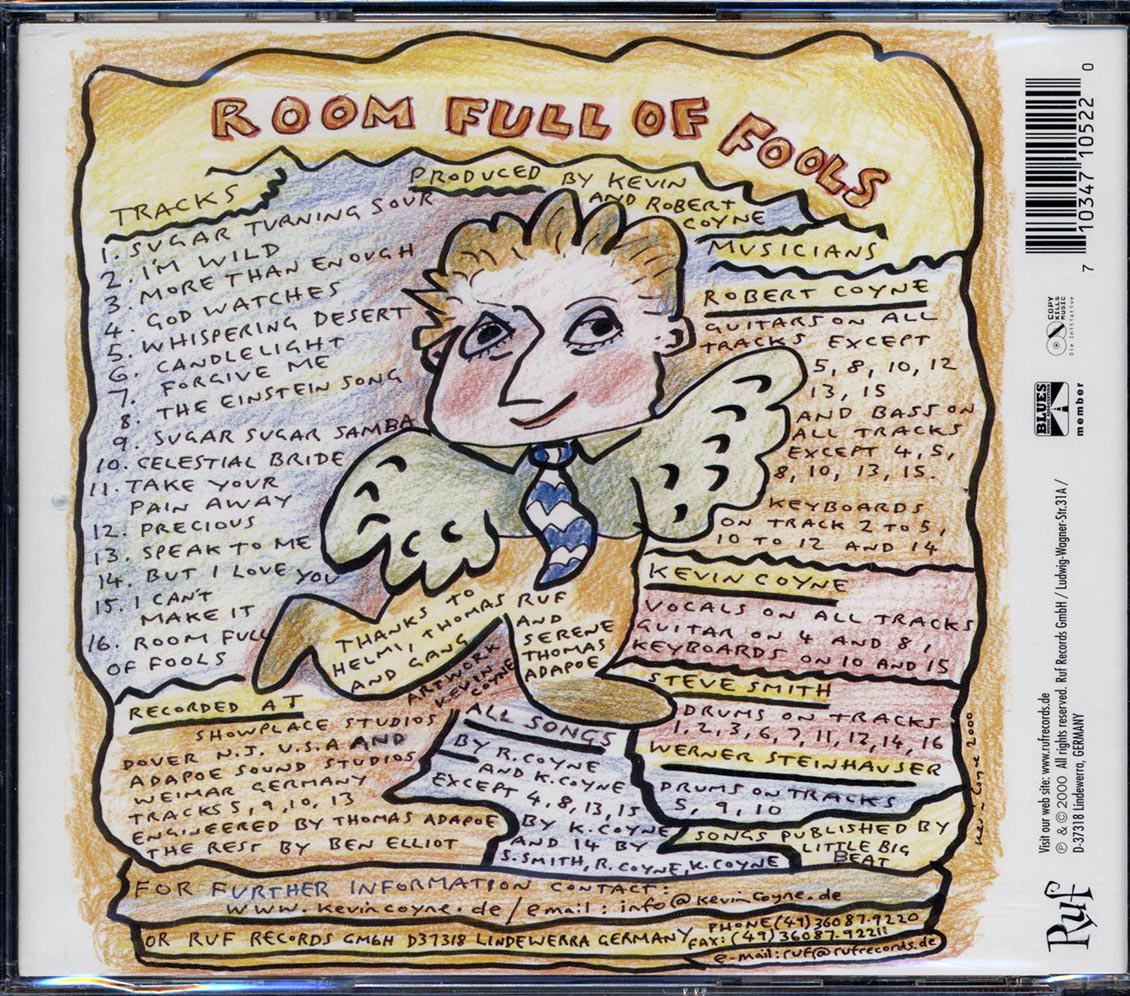 ROOM FULL OF FOOLS
TRACKS
1. SUGAR TURNING SOUR
2. I'M WILD
3. MORE THAN ENOUGH
4. GOD WATCHES
5. WHISPERING DESERT
6. CANDLELIGHT
7. FORGIVE ME
8. THE EINSTEIN SONG
9. SUGAR SUGAR SAMBA
10. CELESTIAL BRIDE
11. TAKE YOUR
PAIN AWAY
12. PRECIOUS
13. SPEAK TO ME
14. BUT I LOVE YOU
15. I CAN'T
MAKE IT
16. ROOM FULL
OF FOOLS
PRODUCED BY KEVIN
AND ROBERT
COYNE
MUSICIANS
ROBERT COYNE
GUITARS ON ALL
TRACKS EXCEPT
5, 8, 10, 12
13, 15
AND BASS ON
ALL TRACKS
EXCEPT 4, 5,
8, 10, 13, 15.
KEYBOARDS
ON TRACK 2 TO 5,
10 TO 12 AND 14
KEVIN COYNE
VOCALS ON ALL TRACKS
GUITAR ON 4 AND 8,
KEYBOARDS ON 10 AND 15
STEVE SMITH
DRUMS ON TRACKS
1, 2, 3, 6, 7, 11, 12, 14, 16
WERNER STEINHAUSER
DRUMS ON TRACKS
5, 9, 10
SONGS PUBLISHED BY
LITTLE BIG
BEAT
THANKS TO
HELMI, THOMAS RUF
AND GANG
AND
SERENE
THOMAS
ADAPOE
ARTWORK
KEVIN
COYNE
RECORDED AT
SHOWPLACE STUDIOS
DOVER N.J. U.S.A AND
ADAPOE SOUND STUDIOS
WEIMAR GERMANY
TRACKS 5, 9, 10, 13
ENGINEERED BY THOMAS ADAPOE
THE REST BY BEN ELLIOT
ALL SONGS
BY R. COYNE
AND K. COYNE
EXCEPT 4, 8, 13, 15
BY K. COYNE
AND 14 BY
S. SMITH, R. COYNE, K. COYNE
Kevin Coyne 2000
FOR FURTHER INFORMATION CONTACT:
www.kevincoyne.de / email: info@kevincoyne.de
OR RUF RECORDS GMBH D37318 LINDEWERRA GERMANY
PHONE (49) 36087-9220
FAX: (49) 36087-92211
e-mail: ruf@rufrecords.de
7 10347 10522 0
COPY
KILLS
MUSIC
Die Initiative
BLUES
member
Visit our web site: www.rufrecords.de
℗ & © 2000 All rights reserved. Ruf Records GmbH / Ludwig-Wagner-Str.31A /
D-37318 Lindewerra, GERMANY
Ruf